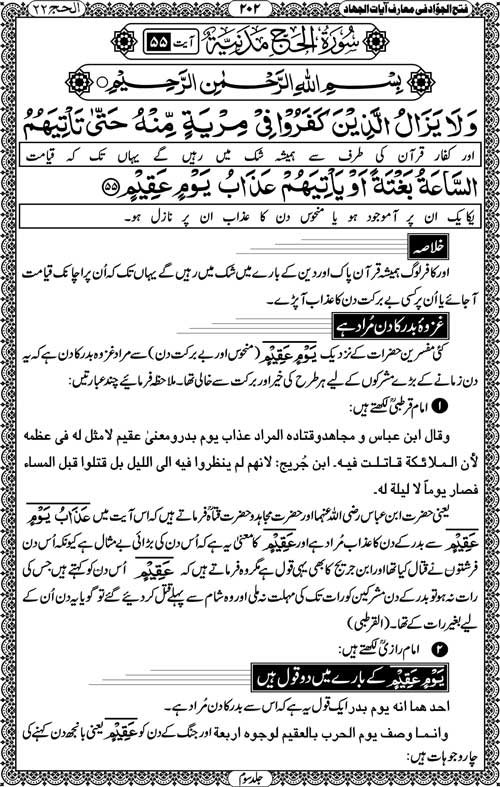 فتح الجوّاد فی معارف آیات الجهاد
۲۰۲
الحج ۲۲
سُورَةُ الْحَجِّ مَدَنِيَّةٌ آیت ۵۵
بِسْمِ اللهِ الرَّحْمٰنِ الرَّحِيْمِ
وَلَا يَزَالُ الَّذِيْنَ كَفَرُوْا فِيْ مِرْيَةٍ مِّنْهُ حَتّٰى تَأْتِيَهُمُ
اور کفار قرآن کی طرف سے ہمیشہ شک میں رہیں گے یہاں تک کہ قیامت
السَّاعَةُ بَغْتَةً اَوْ يَأْتِيَهُمْ عَذَابُ يَوْمٍ عَقِيْمٍ ۵۵
یکایک ان پر آموجود ہو یا منحوس دن کا عذاب ان پر نازل ہو۔
خلاصہ
اور کافر لوگ ہمیشہ قرآن پاک اور دین کے بارے میں شک میں رہیں گے یہاں تک کہ اُن پر اچانک قیامت
آجائے یا اُن پر کسی بے برکت دن کا عذاب آپڑے۔
غزوۂ بدر کا دن مُراد ہے
کئی مفسرین حضرات کے نزدیک یَوْمٍ عَقِیْمٍ (منحوس اور بے برکت دن) سے مراد غزوہ بدر کا دن ہے کہ یہ
دن زمانے کے بڑے مشرکوں کے لیے ہر طرح کی خیر اور برکت سے خالی تھا۔ ملاحظہ فرمائیے چند عبارتیں:
۱ امام قرطبیؒ لکھتے ہیں:
وقال ابن عباس و مجاهد وقتاده المراد عذاب يوم بدر ومعنىٰ عقيم لامثل له فى عظمه
لأن الملائكة قاتلت فيه۔ ابن جُريج: لانهم لم ينظروا فيه الى الليل بل قتلوا قبل المساء
فصار يوماً لا ليلة له۔
یعنی حضرت ابن عباس رضی اللہ عنہما اور حضرت مجاہد و حضرت قتادہؒ فرماتے ہیں کہ اس آیت میں عَذَابُ یَوْمٍ
عَقِیْمٍ سے بدر کے دن کا عذاب مُراد ہے اور عَقِیْمٍ کا معنیٰ یہ ہے کہ اُس دن کی بڑائی بے مثال ہے کیونکہ اُس دن
فرشتوں نے قتال کیا تھا اور ابن جریج کا بھی یہی قول ہے مگر وہ فرماتے ہیں کہ عَقِیْمٍ اُس دن کو کہتے ہیں جس کی
رات نہ ہو تو بدر کے دن مشرکین کو رات تک کی مہلت نہ ملی اور وہ شام سے پہلے قتل کر دیئے گئے تو گویا یہ دن اُن کے
لیے بغیر رات کے تھا۔ (القرطبی)
۲ امام رازیؒ لکھتے ہیں:
یَوْمٍ عَقِیْمٍ کے بارے میں دو قول ہیں
احدهما انه يوم بدر ایک قول یہ ہے کہ اس سے بدر کا دن مُراد ہے۔
وانما وصف يوم الحرب بالعقيم لوجوه اربعة اور جنگ کے دن کو عَقِیْمٍ یعنی بانجھ دن کہنے کی
چار وجوہات ہیں:
جلد سوم